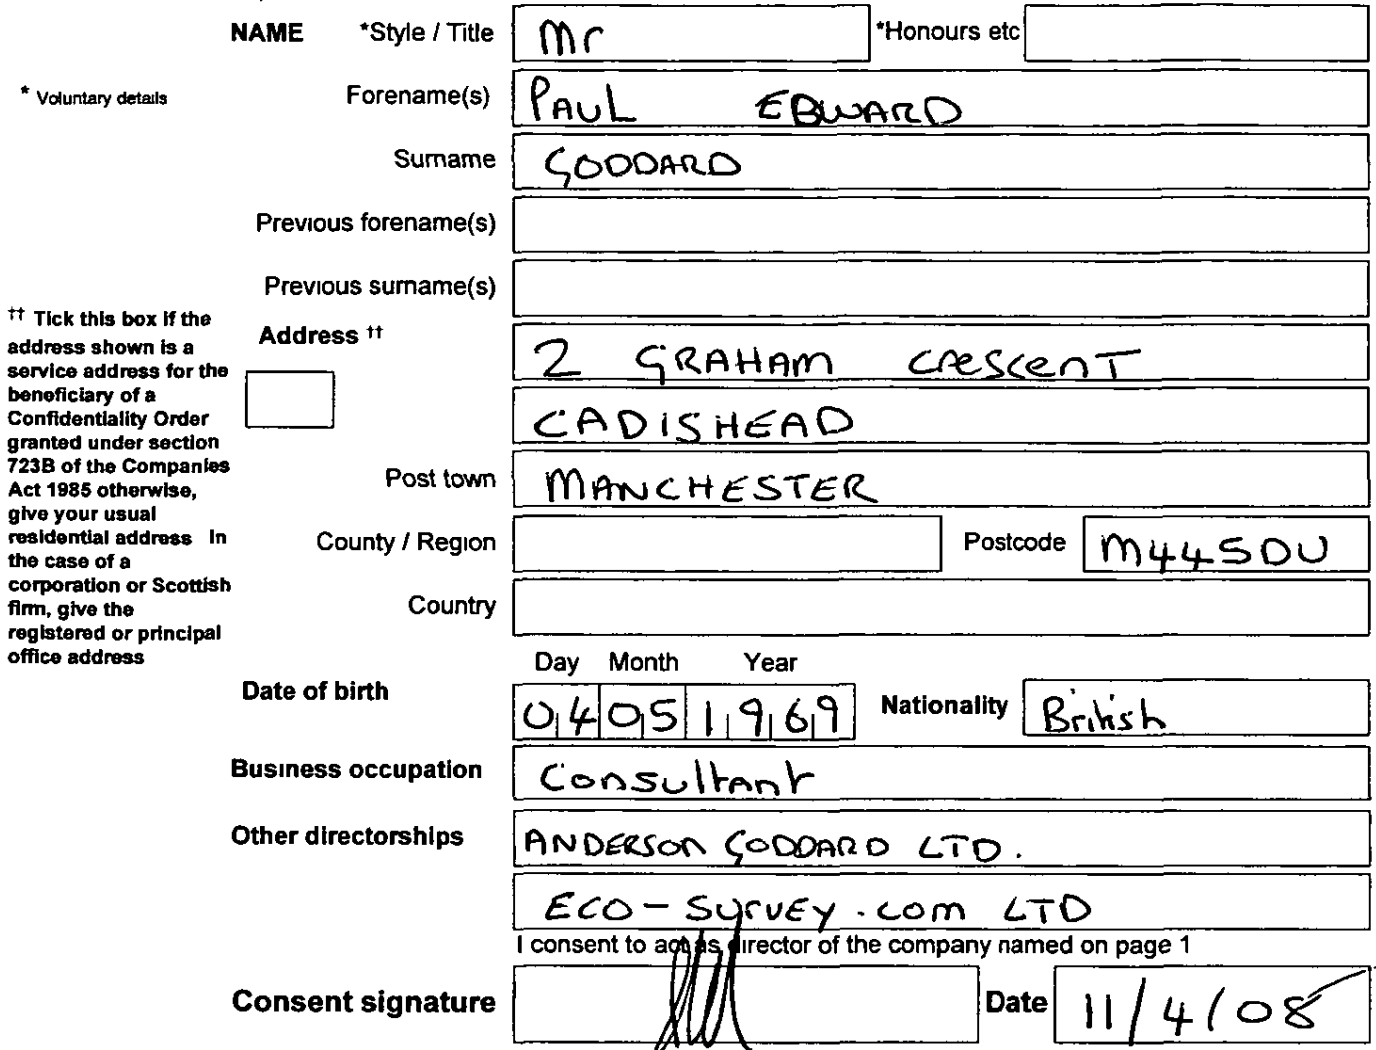 NAME *Style / Title Mr *Honours etc
* Voluntary details Forename(s) PAUL EDWARD
Surname GODDARD
Previous forename(s)
Previous surname(s)
†† Tick this box if the
address shown is a
service address for the
beneficiary of a
Confidentiality Order
granted under section
723B of the Companies
Act 1985 otherwise,
give your usual
residential address In
the case of a
corporation or Scottish
firm, give the
registered or principal
office address
Address †† 2 GRAHAM Crescent
CADISHEAD
Post town MANCHESTER
County / Region Postcode M445DU
Country
Day Month Year
Date of birth 04 05 1969 Nationality British
Business occupation Consultant
Other directorships ANDERSON GODDARD LTD.
ECO-SURVEY.com LTD
I consent to act as director of the company named on page 1
Consent signature Date 11/4/08